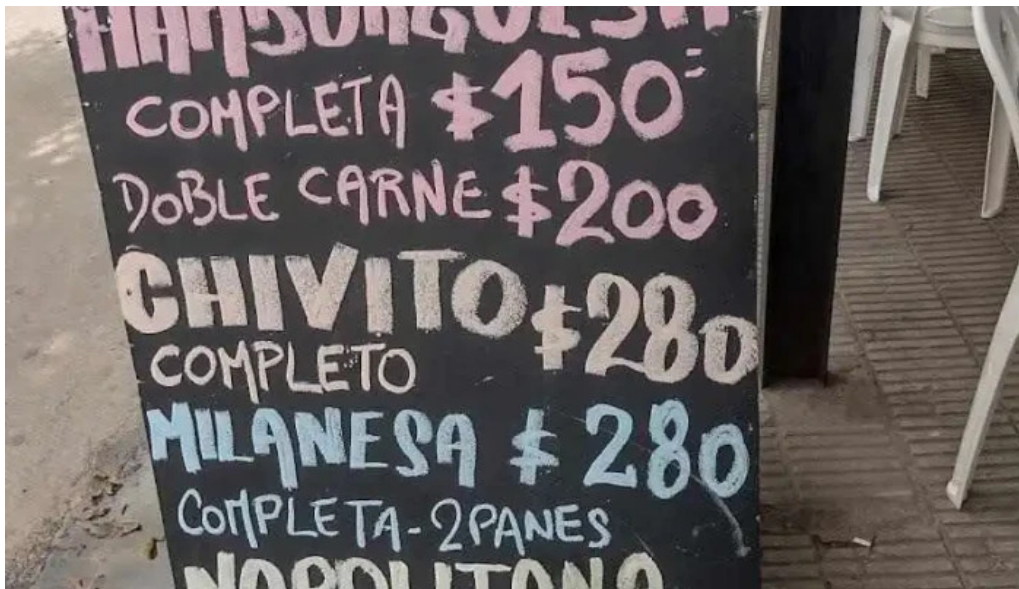 HAMBURGUESA
COMPLETA $150=
DOBLE CARNE $200
CHIVITO $280
COMPLETO
MILANESA $280
COMPLETA-2PANES
NAPOLITANA